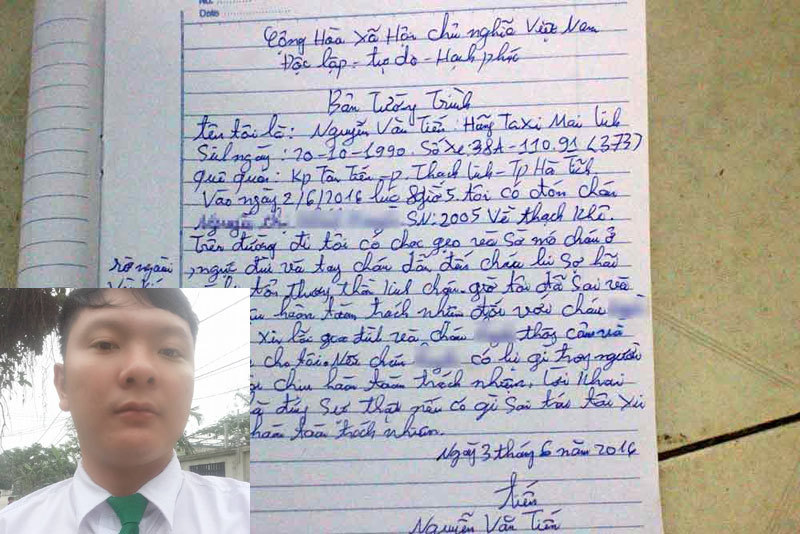 No.
Date
Cộng Hòa Xã Hội chủ nghĩa Việt Nam
Độc lập - tự do - Hạnh phúc
Bản Tường Trình
tên tôi là: Nguyễn Văn Tiến: Hãng Taxi Mai linh
Sinh ngày: 20-10-1990. Số xe: 38A-110.91 (373)
quê quán: Kp Tân Tiến - p. Thạch linh - Tp Hà Tĩnh
Vào ngày 2/6/2016 lúc 8giờ5. tôi có đón cháu
SN: 2005 Về thạch Khê.
Trên đường đi tôi có chọc gẹo và Sờ mó cháu ở
ngực đùi và tay chân dẫn đến cháu bị Sợ hãi
tổn thương thân giờ tôi đã Sai và
hoàn toàn trách nhiệm đối với cháu
xin lỗi gia đình và cháu thông cảm và
cho tôi. Nếu cháu có bị gì trong người
chịu hoàn toàn trách nhiệm. lời khai
là đúng Sự thật nếu có gì Sai trái tôi xin
hoàn toàn trách nhiệm.
Ngày 3 tháng 6 năm 2016
tiến
Nguyễn Văn Tiến